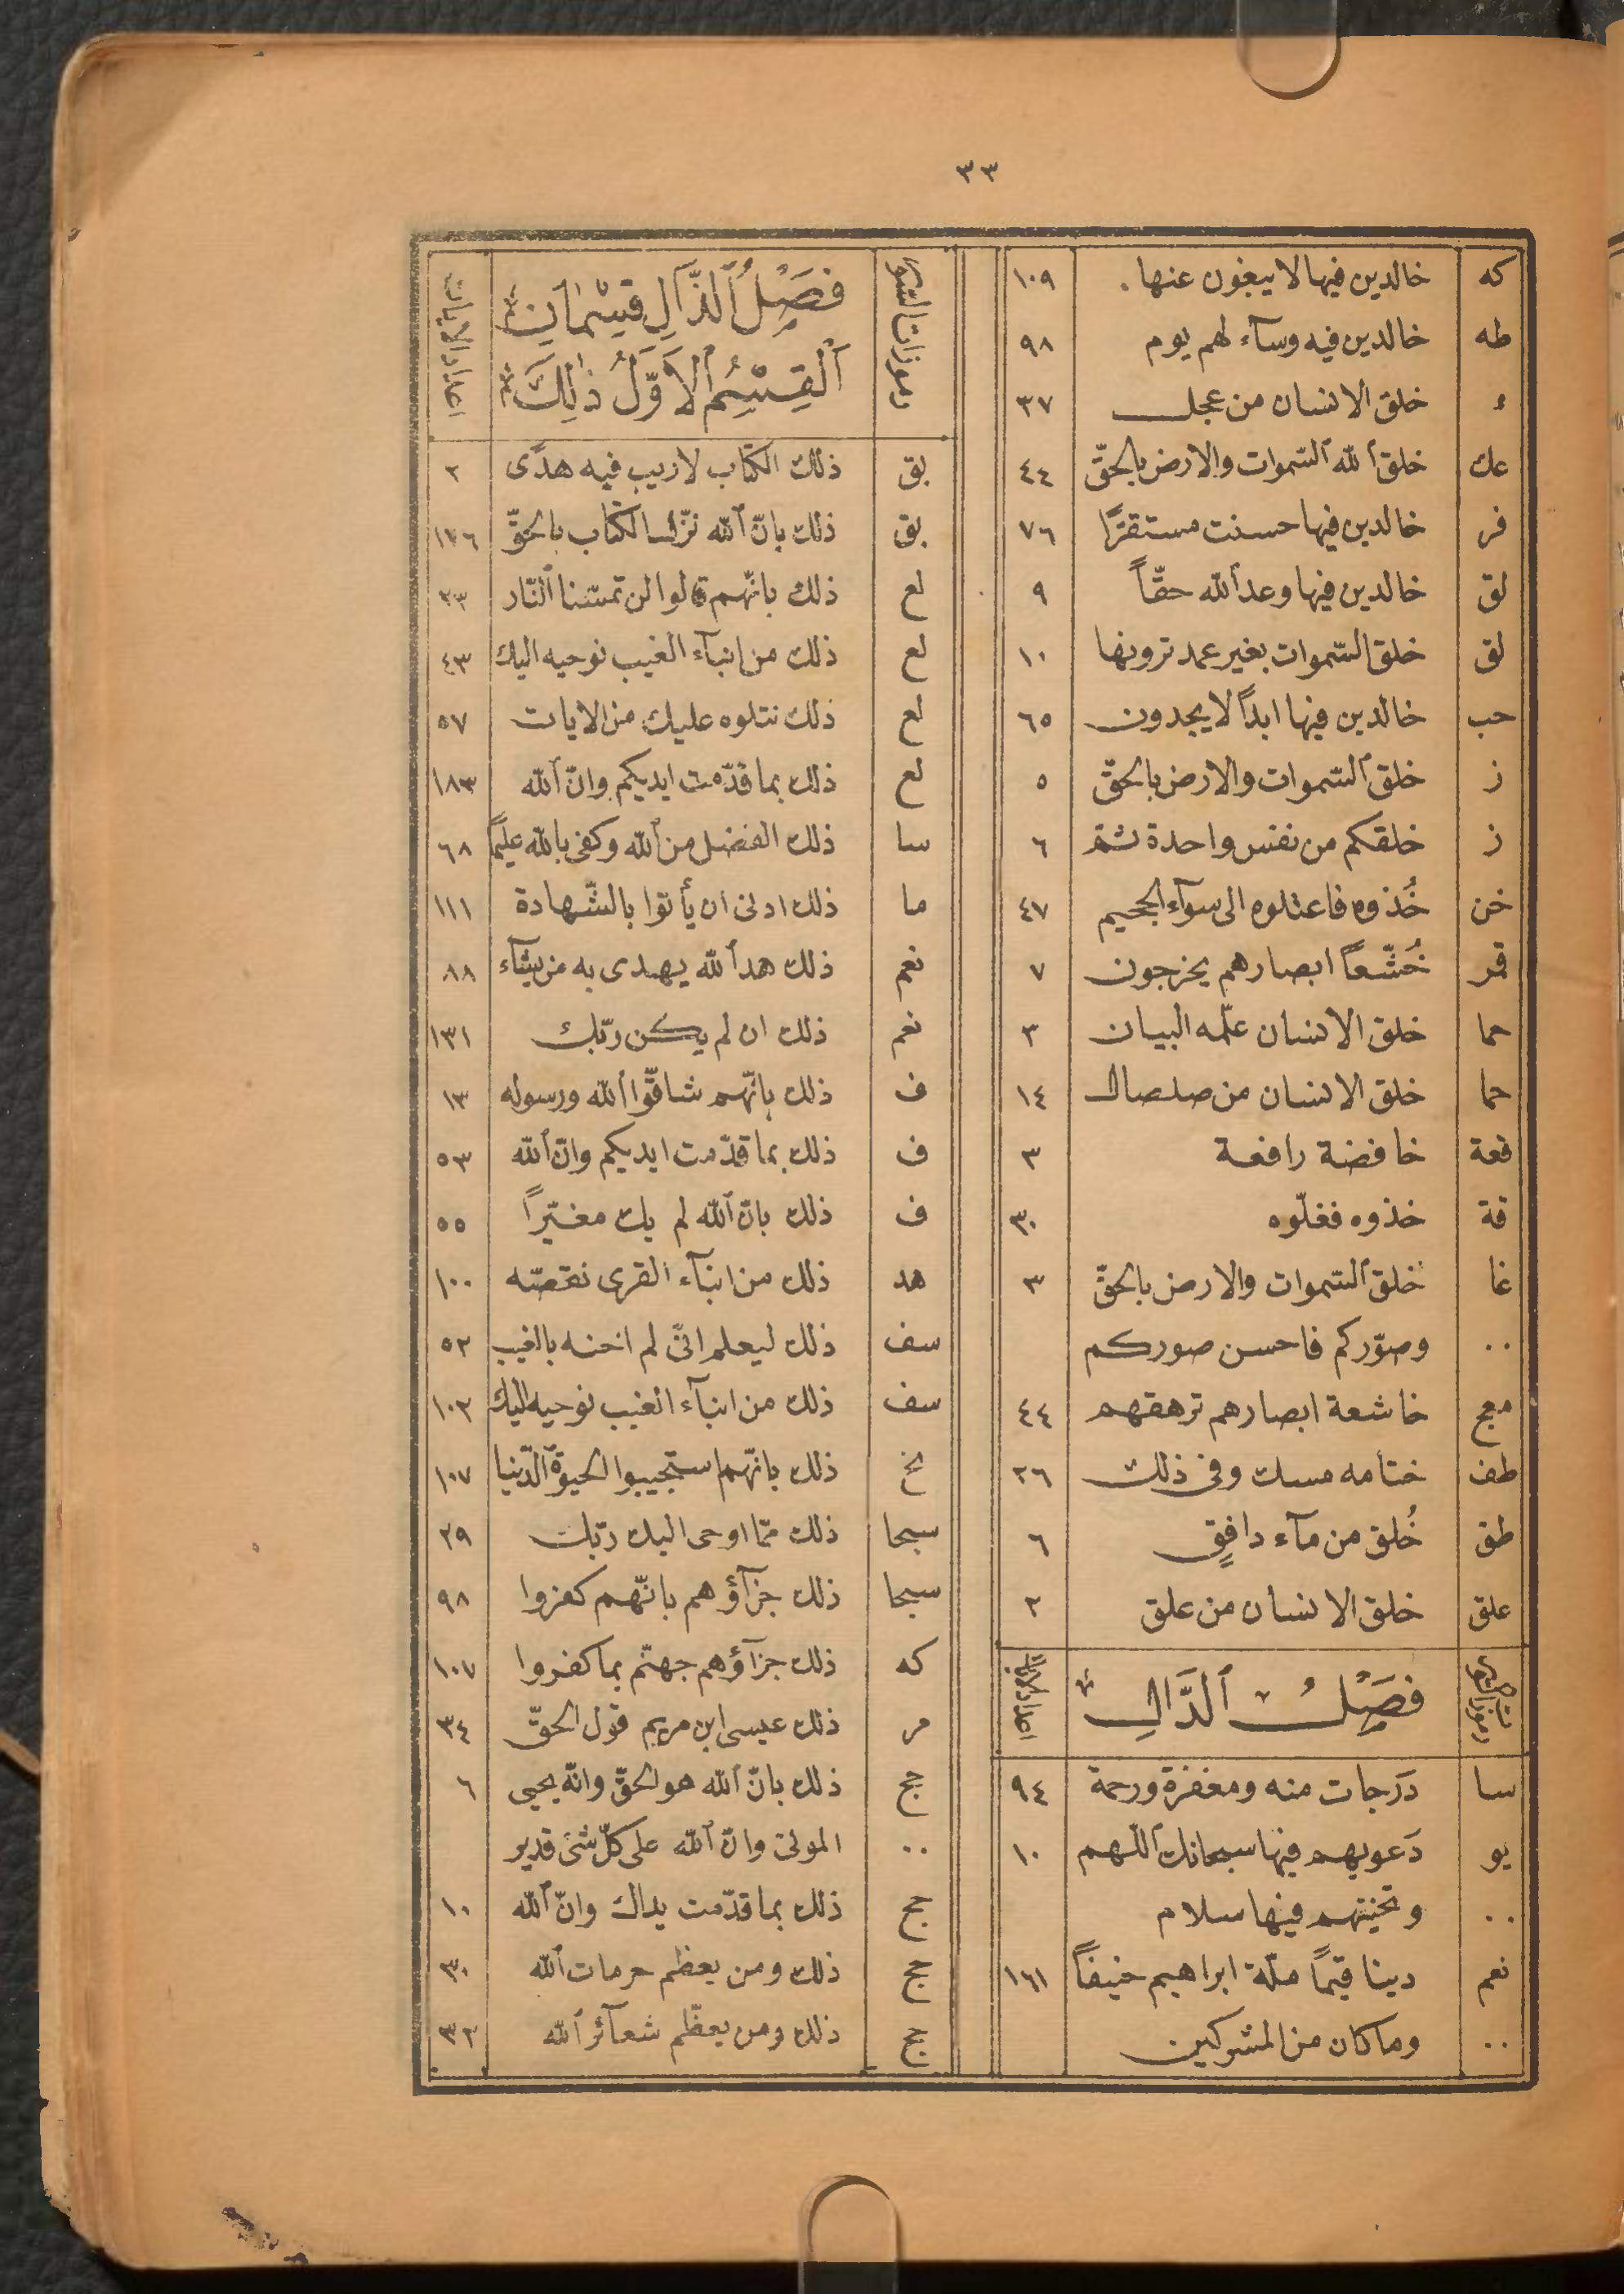 ٣٣
كه خالدين فيها لا يبغون عنها . ١٠٩
طه خالدين فيه وسآء لهم يوم ٩٨
ء خلق الانسان من عجل ٣٧
عك خلق ٱلله ٱلسّموات والارض بالحقّ ٤٤
فر خالدين فيها حسنت مستقرًّا ٧٦
لق خالدين فيها وعد ٱلله حقّاً ٩
لق خلق السّموات بغير عمد ترونها ١٠
حب خالدين فيها ابداً لا يجدون ٦٥
ز خلق ٱلسّموات والارض بالحقّ ٥
ز خلقكم من نفس واحدة ثمّ ٦
خن خُذوه فاعتلوه الى سوآء الجحيم ٤٧
قمر خُشّعاً ابصارهم يخرجون ٧
حما خلق الانسان علّمه البيان ٣
حما خلق الانسان من صلصال ١٤
قعة خافضة رافعة ٣
قة خذوه فغلّوه ٣٠
غا خلق ٱلسّموات والارض بالحقّ ٣
.. وصوّركم فاحسن صوركم
معج خاشعة ابصارهم ترهقهم ٤٤
طف ختامه مسك وفى ذلك ٢٦
طق خُلق من مآء دافقٍ ٦
علق خلق الانسان من علق ٢
رموزات السّور فَصْلُ ٱلدَّالِ اعداد الايات
سا دَرجات منه ومغفرة ورحمة ٩٤
يو دَعويهم فيها سبحانك ٱللّهم ١٠
.. وتحيّتهم فيها سلام
نعم دينا قيمًا ملّة ابراهيم حنيفاً ١٦١
.. وما كان من المشركين
رموزات السّور فَصْلُ ٱلذَّالِ قِسْمَانِ اعداد الايات
ٱلْقِسْمُ ٱلاَوَّلُ ذٰلِكَ
بق ذلك الكتاب لا ريب فيه هدًى ٢
بق ذلك بانّ ٱلله نزّل الكتاب بالحقّ ١٧٦
لع ذلك بانّهم قالوا لن تمسّنا ٱلنّار ٢٣
لع ذلك من انبآء الغيب نوحيه اليك ٤٣
لع ذلك نتلوه عليك من الايات ٥٧
لع ذلك بما قدّمت ايديكم وانّ ٱلله ١٨٣
سا ذلك الفضل من ٱلله وكفى بالله عليمًا ٦٨
ما ذلك ادنى ان يأتوا بالشّهادة ١١١
نعم ذلك هد ٱلله يهدى به من يشآء ٨٨
نعم ذلك ان لم يكن ربّك ١٣١
ف ذلك بانّهم شاقّوا ٱلله ورسوله ١٣
ف ذلك بما قدّمت ايديكم وانّ ٱلله ٥٣
ف ذلك بانّ ٱلله لم يك مغيّراً ٥٥
هد ذلك من انبآء القرى نقصّه ١٠٠
سف ذلك ليعلم انّى لم اخنه بالغيب ٥٢
سف ذلك من انبآء الغيب نوحيه اليك ١٠٣
نح ذلك بانّهم استحيبوا الحيوة ٱلدّنيا ١٠٧
سبحا ذلك ممّا اوحى اليك ربّك ٣٩
سبحا ذلك جزآؤهم بانّهم كفروا ٩٨
كه ذلك جزآؤهم جهنّم بما كفروا ١٠٧
مر ذلك عيسى ابن مريم قول الحقّ ٣٤
حج ذلك بانّ ٱلله هو الحقّ وانّه يحيى ٦
.. الموتى وانّ ٱلله على كلّ شئ قدير
حج ذلك بما قدّمت يداك وانّ ٱلله ١٠
حج ذلك ومن يعظم حرمات ٱلله ٣٠
حج ذلك ومن يعظّم شعآئر ٱلله ٣٢